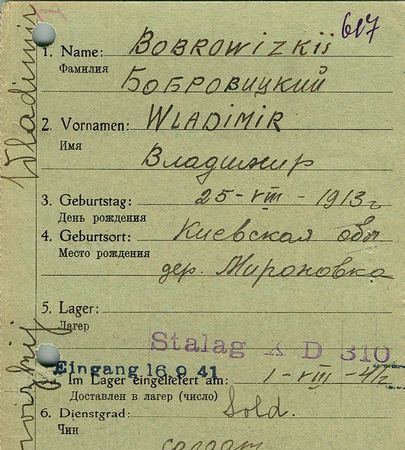 617
1. Name: BOBROWIZKII
Фамилия
БОБРОВИЦКИЙ
2. Vornamen: WLADIMIR
Имя
Владимир
3. Geburtstag: 25-VIII-1913г
День рождения
4. Geburtsort: Киевская обл.
Место рождения
дер. Мироновка
5. Lager:
Лагер
Stalag X D 310
Eingang 16.9.41
Im Lager eingeliefert am: 1-VIII-41г
Доставлен в лагер (число)
6. Dienstgrad: Sold.
Чин
солдат
Wladimir